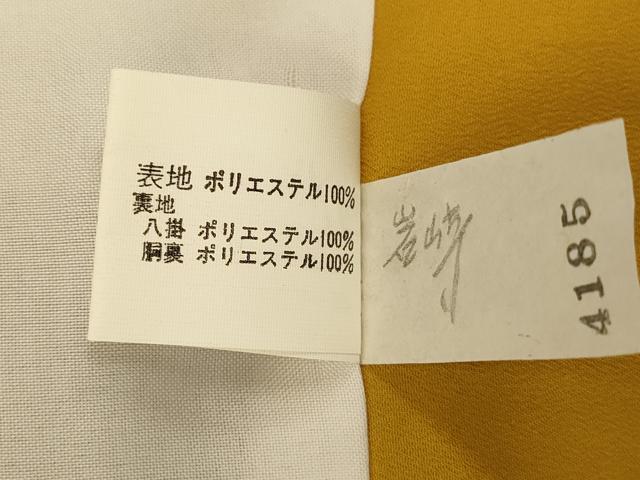 表地 ポリエステル100%
裏地
八掛 ポリエステル100%
胴裏 ポリエステル100%
岩崎
4185